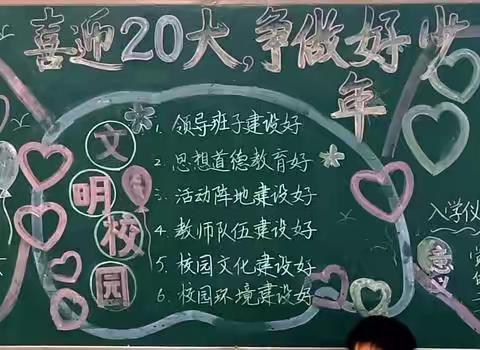 喜迎20大,争做好少年
文明校园
1、领导班子建设好
2、思想道德教育好
3、活动阵地建设好
4、教师队伍建设好
5、校园文化建设好
6、校园环境建设好
入学仪
意义